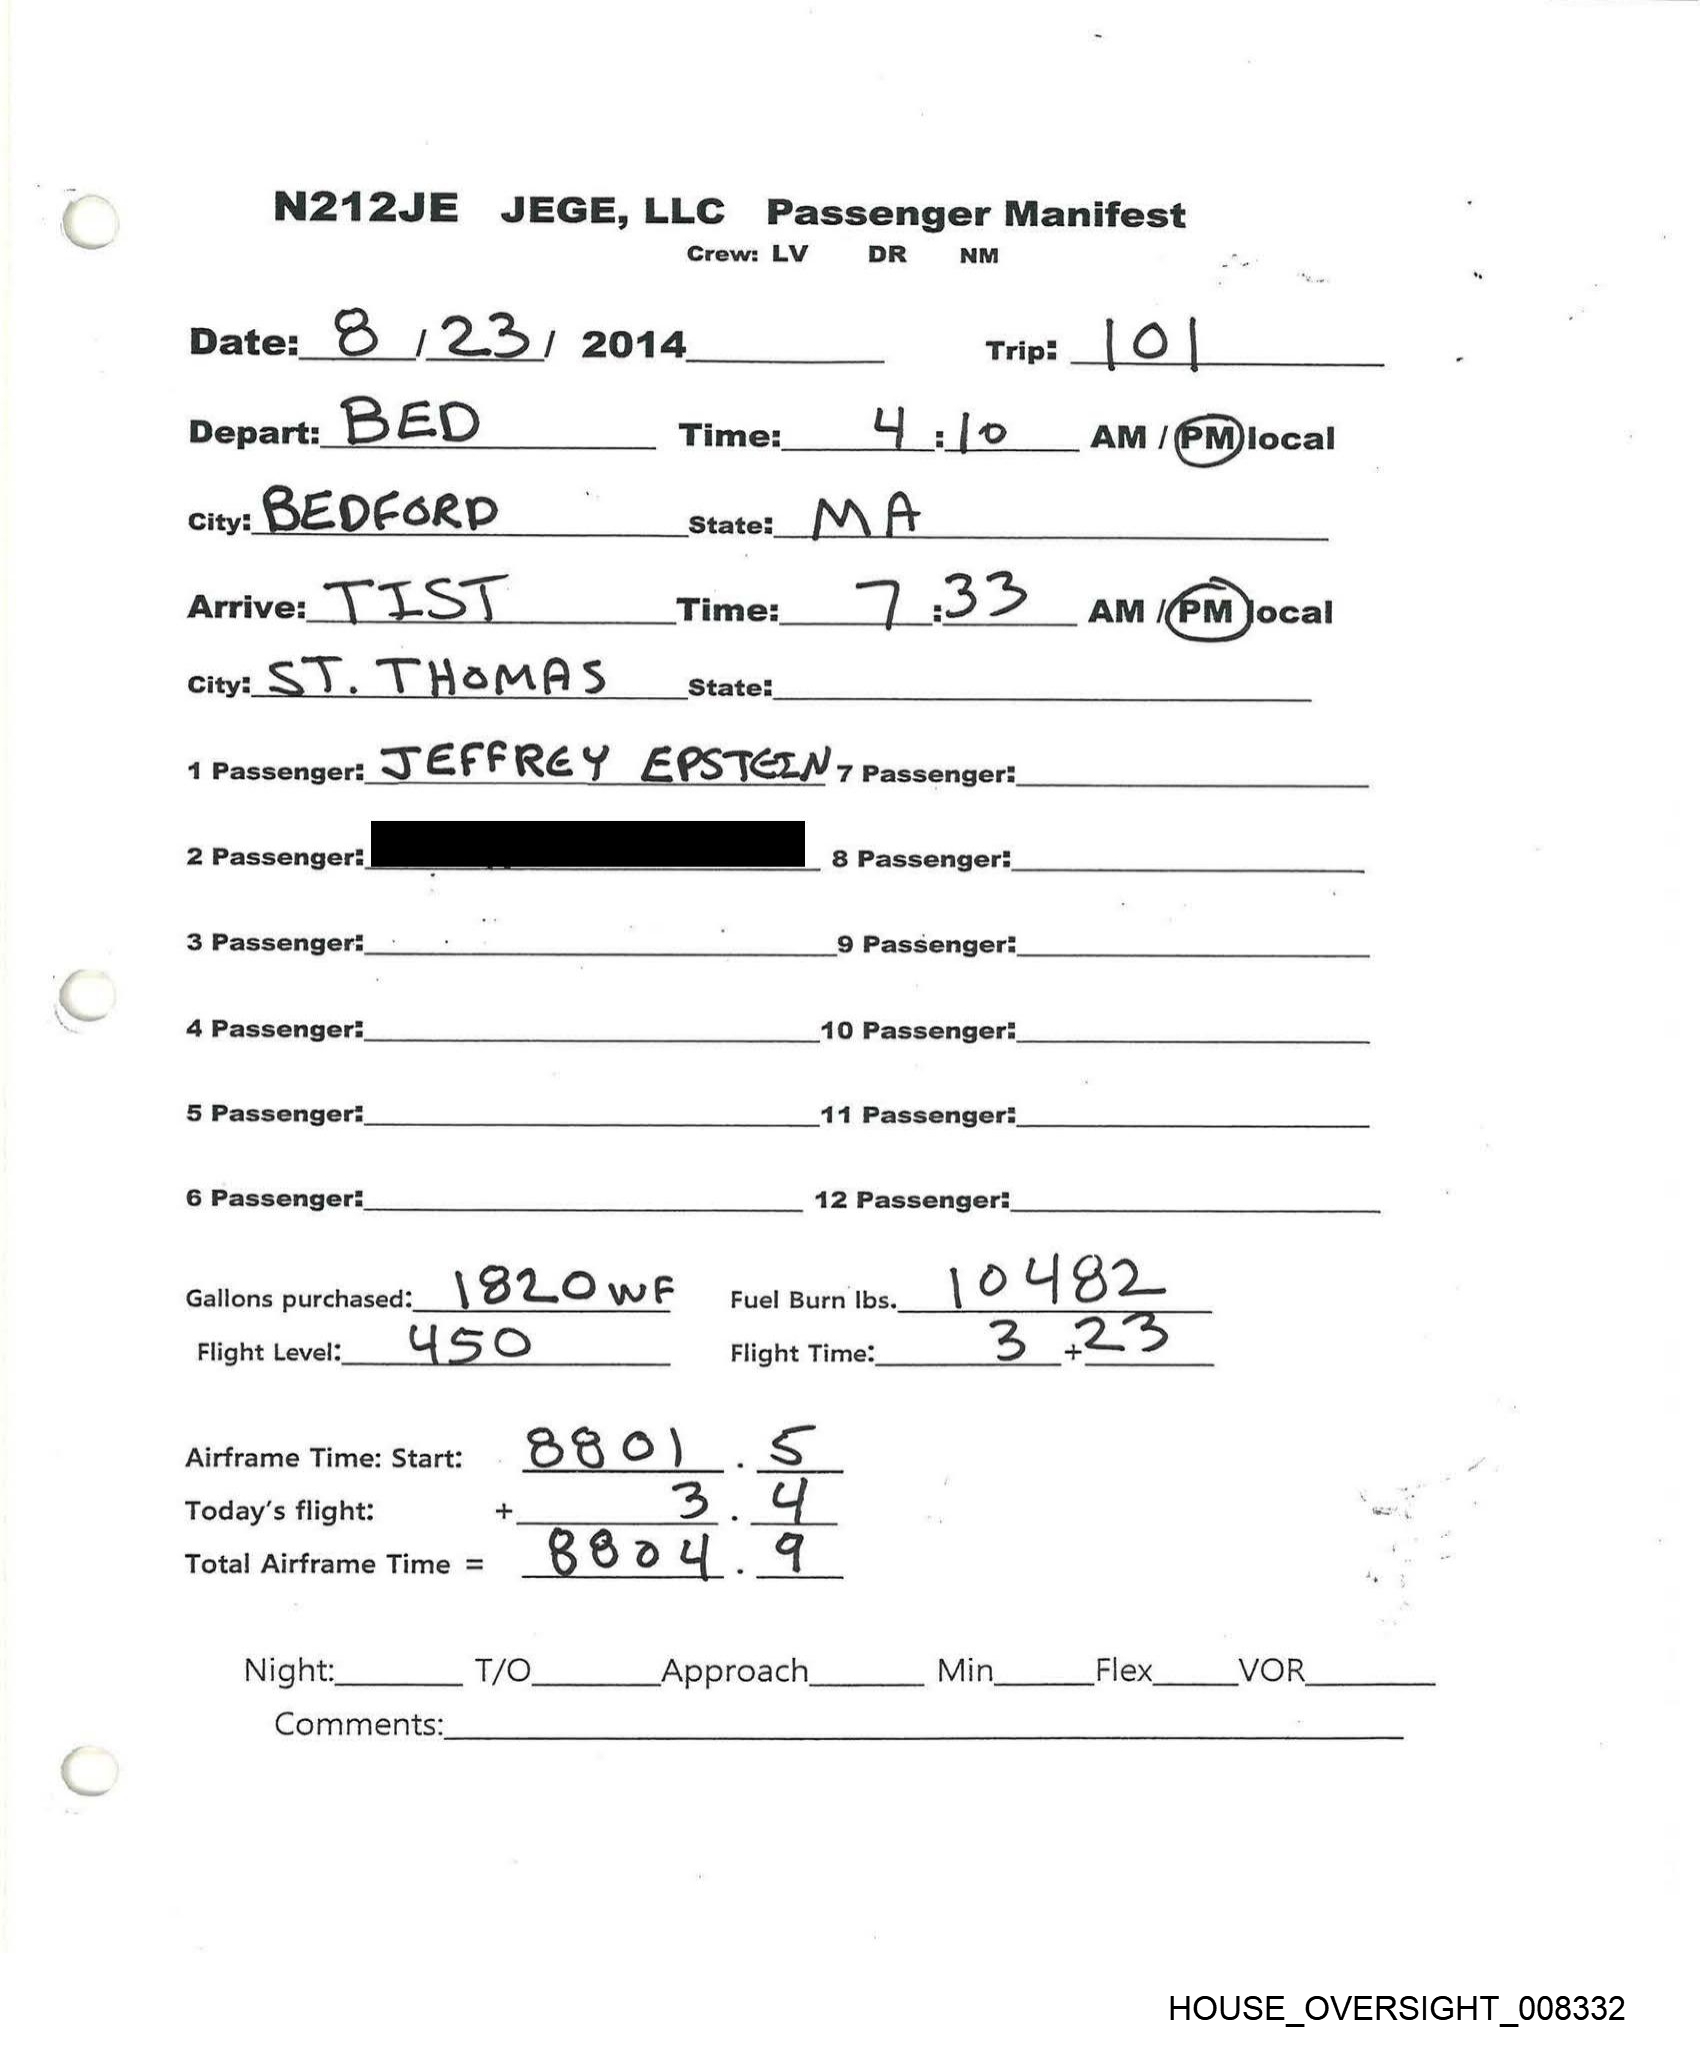 N212JE JEGE, LLC Passenger Manifest
Crew: LV DR NM
Date: 8 / 23 / 2014 Trip: 101
Depart: BED Time: 4 : 10 AM / PM local
City: BEDFORD State: MA
Arrive: TIST Time: 7 : 33 AM / PM local
City: ST. THOMAS State:
1 Passenger: JEFFREY EPSTEIN 7 Passenger:
2 Passenger: 8 Passenger:
3 Passenger: 9 Passenger:
4 Passenger: 10 Passenger:
5 Passenger: 11 Passenger:
6 Passenger: 12 Passenger:
Gallons purchased: 1820 WF Fuel Burn lbs. 10482
Flight Level: 450 Flight Time: 3 + 23
Airframe Time: Start: 8801 . 5
Today's flight: + 3 . 4
Total Airframe Time = 8804 . 9
Night: T/O Approach Min Flex VOR
Comments:
HOUSE_OVERSIGHT_008332